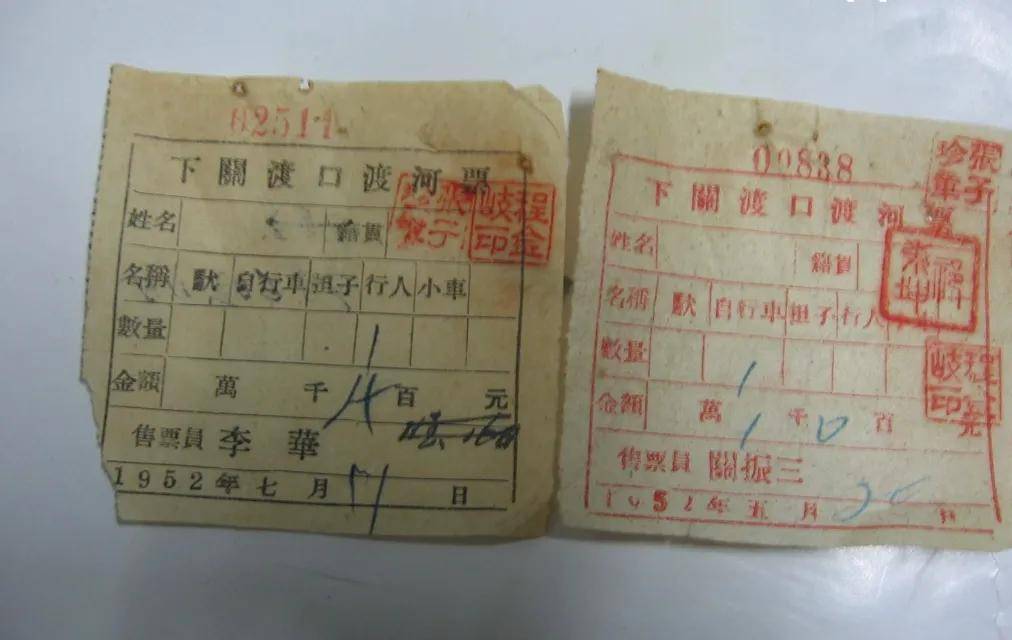 02511
下關渡口渡河票
姓名 籍貫
張子
程金岐印
名稱 馱 自行車 担子 行人 小車
數量 1
金額 萬 千 4 百 元
售票員 李華
1952年七月 日
00838
張子華珍
下關渡口渡河票
姓名 籍貫
名稱 馱 自行車 担子 行人
程金岐印
數量 1
金額 萬 1 千 0 百 元
售票員 關振三
1952年五月 日